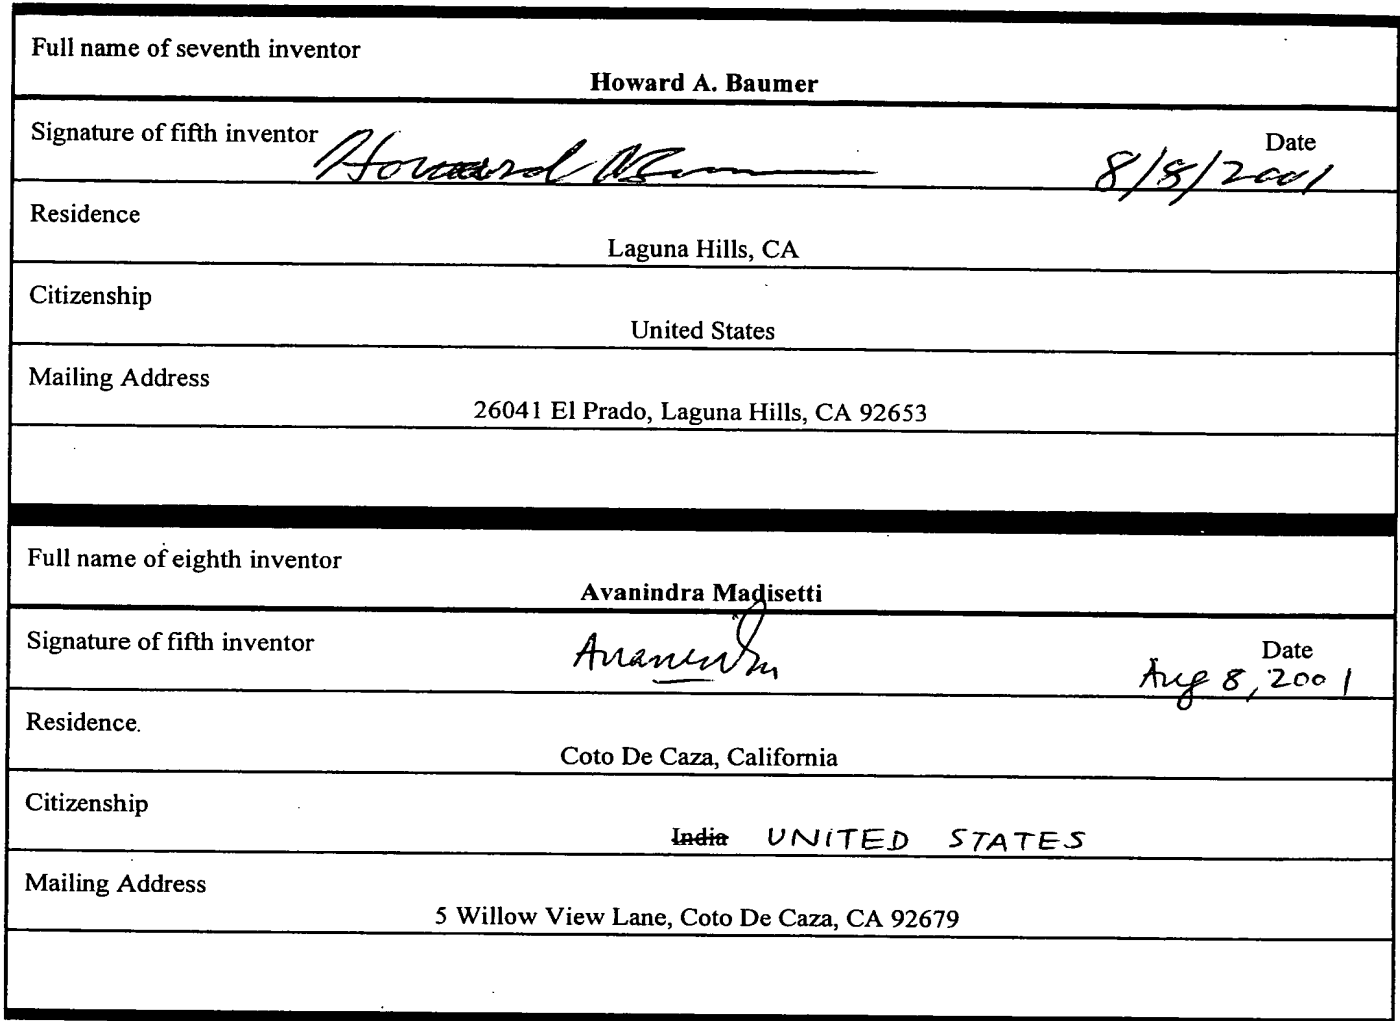 Full name of seventh inventor
Howard A. Baumer
Signature of fifth inventor Howard Date
8/8/2001
Residence
Laguna Hills, CA
Citizenship
United States
Mailing Address
26041 El Prado, Laguna Hills, CA 92653
Full name of eighth inventor
Avanindra Madisetti
Signature of fifth inventor Date
Aug 8, 2001
Residence
Coto De Caza, California
Citizenship
India UNITED STATES
Mailing Address
5 Willow View Lane, Coto De Caza, CA 92679